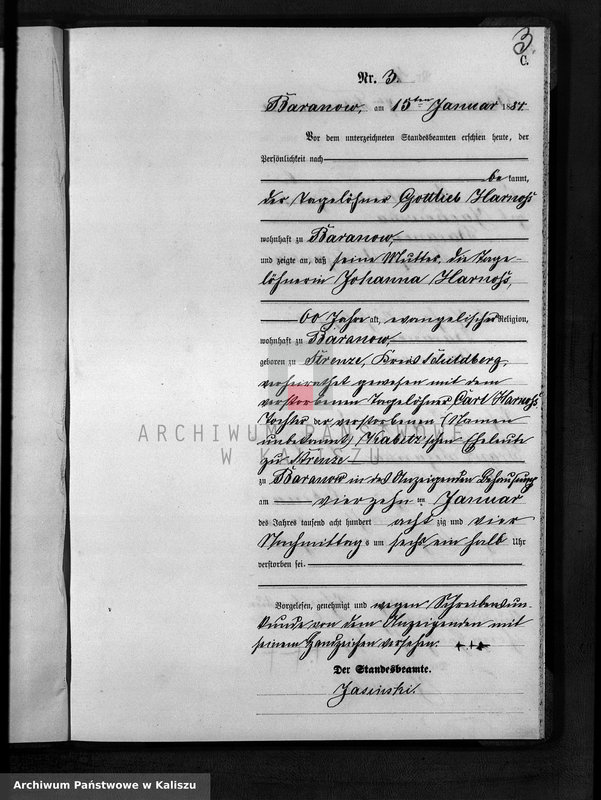 3.
C.
Nr. 3.
Baranow, am 15ten Januar 1884.
Vor dem unterzeichneten Standesbeamten erschien heute, der
Persönlichkeit nach
be kannt,
der Tagelöhner Gottlieb Harnoß
wohnhaft zu Baranow,
und zeigte an, daß seine Mutter, die Tage-
löhnerin Johanna Harnoß,
60 Jahre alt, evangelischer Religion,
wohnhaft zu Baranow
geboren zu Krenze, Kreis Schildberg,
verheirathet gewesen mit dem
verstorbenen Tagelöhner Carl Harnoß,
Tochter der verstorbenen (Namen
unbekannt) Kabitz'schen Eheleute
zu Krenze
zu Baranow in des Anzeigenden Behausung
am vierzehn ten Januar
des Jahres tausend acht hundert acht zig und vier
Nachmittag s um sechs ein halb Uhr
verstorben sei.
Vorgelesen, genehmigt und wegen Schreibensun-
kunde von dem Anzeigenden mit
seinem Handzeichen versehen. +++
Der Standesbeamte.
Jasinski.
ARCHIWUM PAŃSTWOWE
W KALISZU
Archiwum Państwowe w Kaliszu